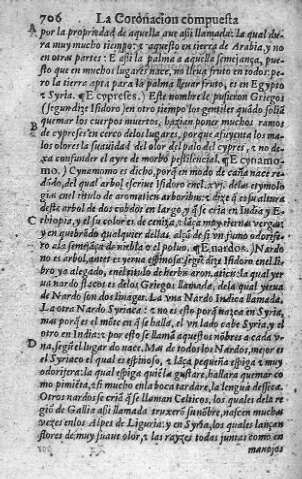 706 La Coronacion compuesta
A por la propriedad de aquella aue assi llamada: la qual du-
ra muy mucho tiempo: y aquesto en tierra de Arabia, y no
en otras partes: E assi la palma a aquella semejança, pue-
sto que en muchos lugares nace, no lleua fruto en todos: pe-
ro la tierra apta para la palma lleuar fruto, es en Egipto
y Syria. (E cypreses.) Este nombre le pusieron Griegos
(segun dize Isidoro) en otro tiempo los gentiles quãdo soliã
quemar los cuerpos muertos, hazian poner muchos ramos
B de cypreses en cerco delos lugares, porque ahuyenta los ma-
los olores la suauidad del olor del palo del cypres, y no de-
xa confunder el ayre de morbo pestilencial. (E cynamo-
mo.) Cynamomo es dicho, porq̃ en modo de caña nace re-
dõdo, del qual arbol escriue Isidoro enel .xvij. delas etymolo
gias enel titulo de aromaticis arboribus: y dize q̃ es su altura
deste arbol de dos cobdos en largo, y q̃ se cria en India y E-
C thiopia, y el su color es de ceniza, y saca muy tiernas vergas
y en quebrãdo qualquier dellas, alçã de si vn fumo odorife-
ro ala semejãça de niebla o el poluo. (E nardos.) Nardo
no es arbol, antes es yerua espinosa: segũ dize Isidoro enel li-
bro ya alegado, enel titulo de herbis aromaticis: la qual yer
ua nardo stacos es delos Griegos llamada, dela qual yerua
de Nardo son dos linages. La vna Nardo Indica llamada,
La otra Nardo Syriaca: y no es esto porq̃ nazca en Syria,
mas porq̃ es el mõte en q̃ se halla, el vn lado cabe Syria, y el
otro en India: y por esto se llamã aquestos nõbres a cada v-
D na, segũ el lugar do nace. Mas de todos los Nardos, mejor es
el Syriaco el qual es espinoso, y saca pequeña espiga y muy
odorifera: la qual espiga quiẽ la gustare, hallara quemar co
mo pimiẽta, y si mucho enla boca tardare, la lengua dessica.
Otros nardos se criã q̃ se llaman Celticos, los quales dela re
giõ de Gallia assi llamada truxerõ su nõbre, nascen muchas
vezes enlos Alpes de Liguria: y en Syria, los quales lançan
flores de muy suaue olor, y las rayzes todas juntas como en
manojos